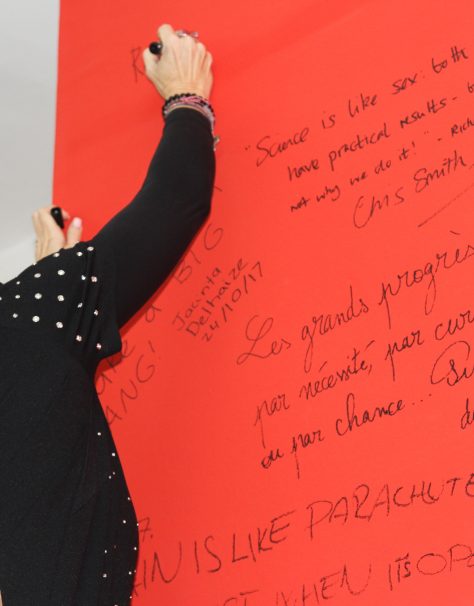 R
"Science is like sex: both
have practical results - b
not why we do it!" - Rich
Chris Smith
BIG
A
ANG!
Jacinta
Delhaize
24/10/17
Les grands progrès
par nécessité, par cur
ou par chance... Su
d
7.
IN IS LIKE PARACHUTE
T WHEN ITS OPE